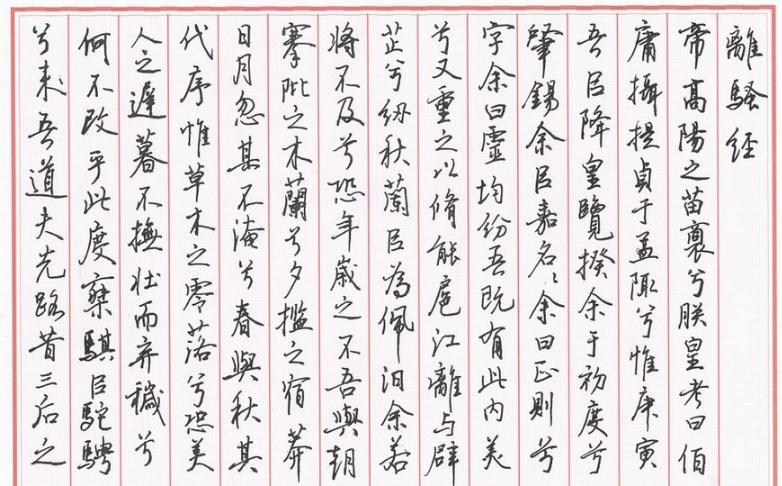 離騷經
帝高陽之苗裔兮朕皇考曰伯
庸攝提貞于孟陬兮惟庚寅
吾㠯降皇覽揆余于初度兮
肇錫余㠯嘉名〻余曰正則兮
字余曰靈均紛吾既有此內美
兮又重之以脩能扈江離与辟
芷兮紉秋蘭㠯為佩汨余若
將不及兮恐年歲之不吾與朝
搴阰之木蘭兮夕㩜之宿莽
日月忽其不淹兮春與秋其
代序惟草木之零落兮恐美
人之遲暮不撫壯而弃穢兮
何不改乎此度椉騏㠯駝騁
兮来吾道夫先路昔三后之